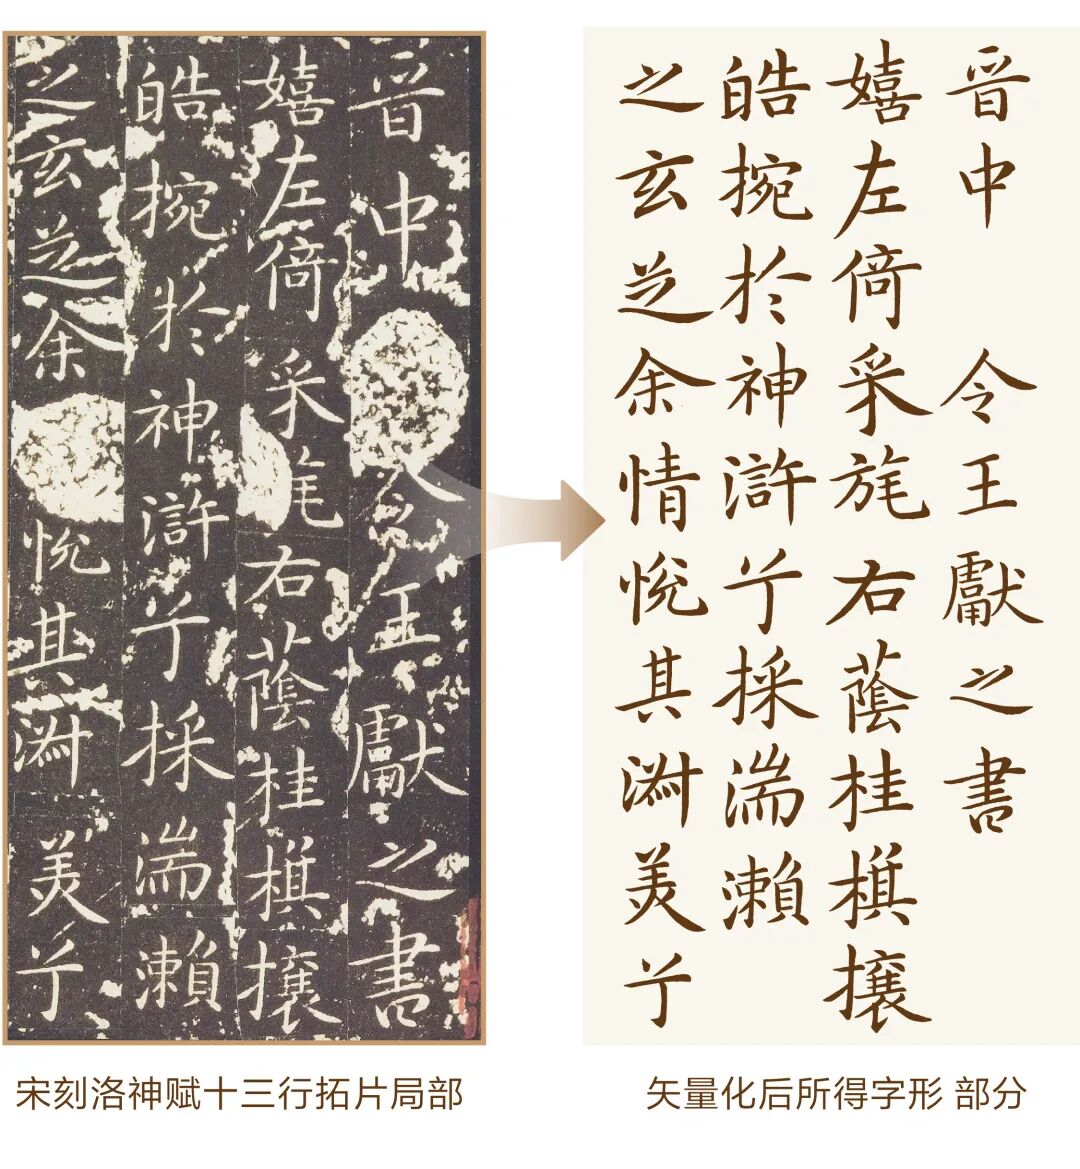 晉中 令王獻之書
嬉左倚采旄右蔭桂棋攘
皓捥於神滸兮採湍瀨
之玄芝余悅其淑美兮
宋刻洛神赋十三行拓片局部
晉中 令王獻之書
嬉左倚采旄右蔭桂棋攘
皓捥於神滸兮採湍瀨
之玄芝余情悅其淑美兮
矢量化后所得字形 部分